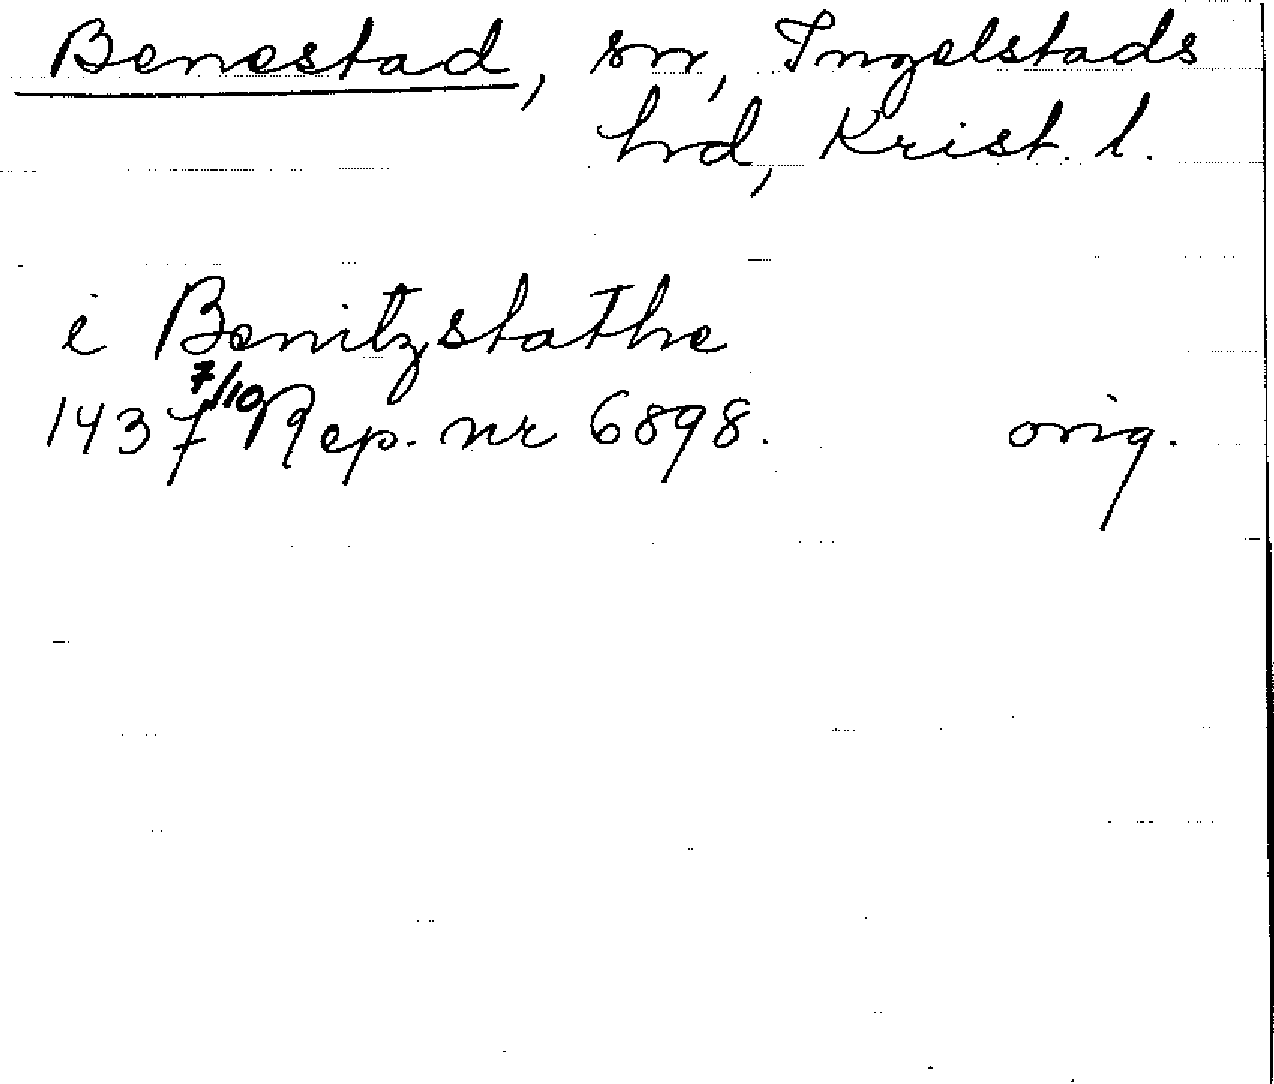 Benestad, sn, Ingelstads
hrd, Krist. l.
i Benitzstathe
1437 7/10 Rep. nr 6898. orig.